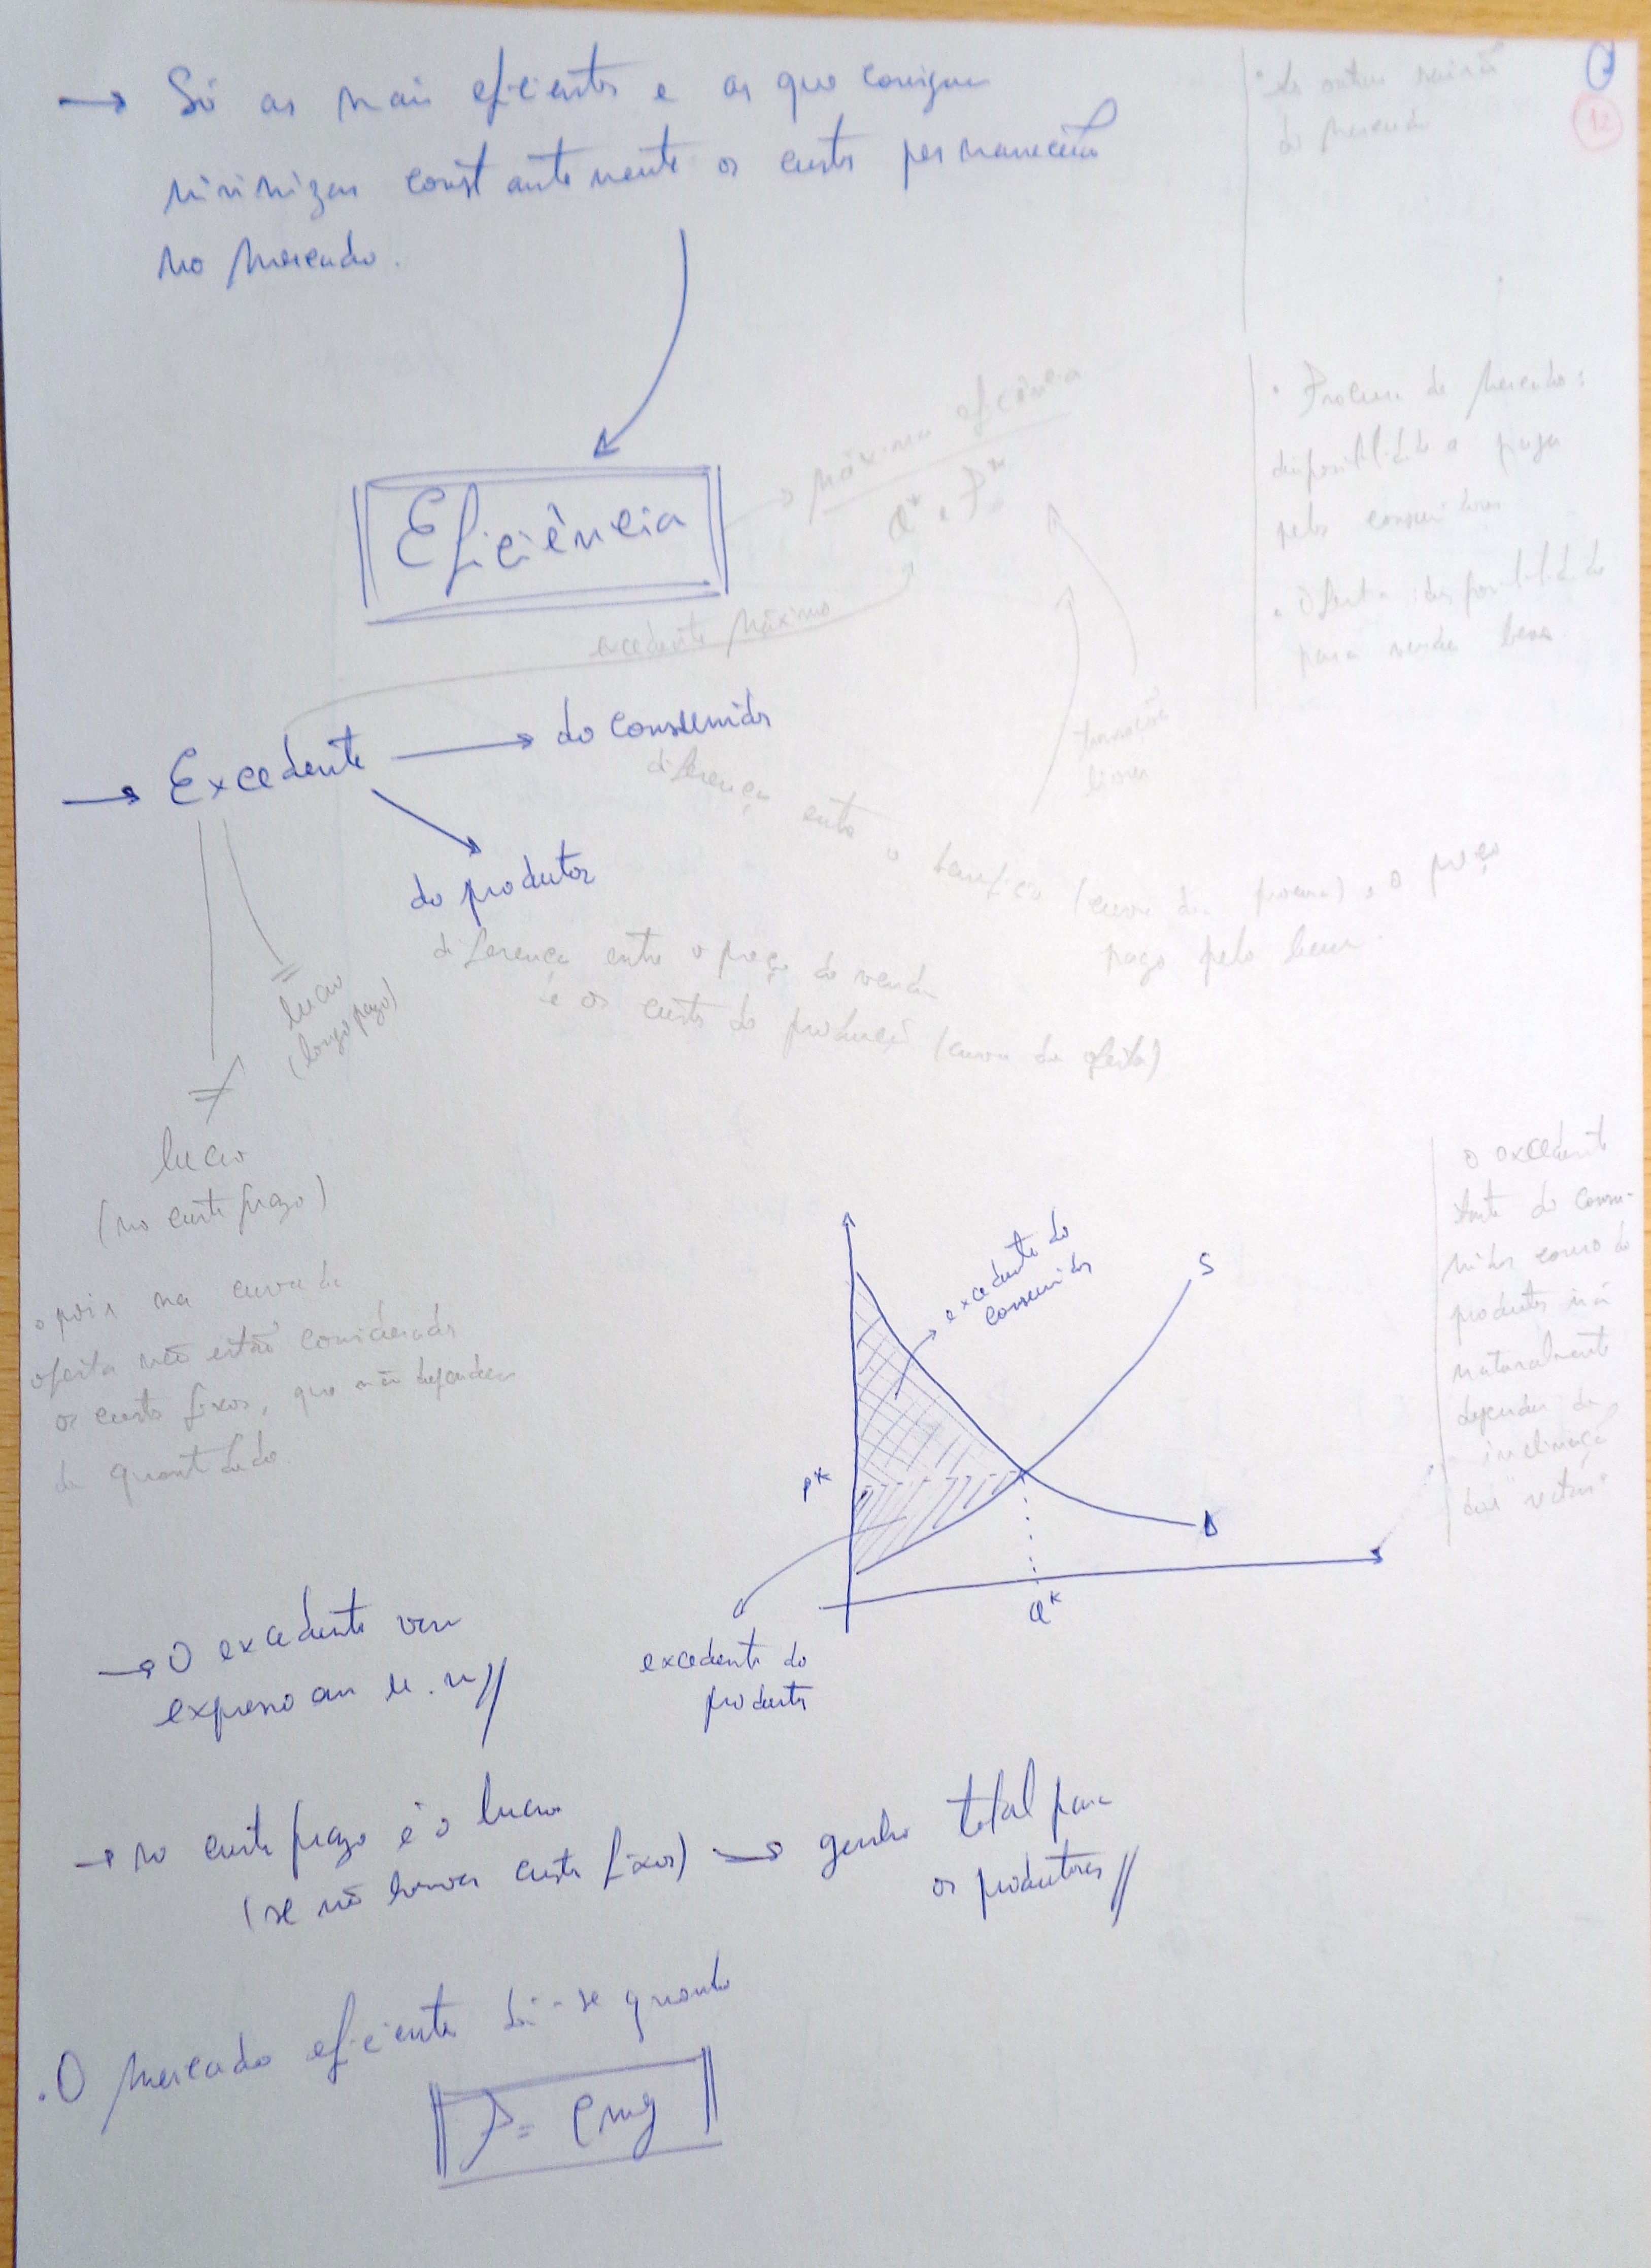 → Só as mais eficientes e as que consigam
minimizar constantemente os custos permanecerão
no mercado.
• As outras sairão
do mercado
12
Eficiência
→ máxima eficiência
Q* e P*
excedente máximo
• Procura de mercado:
disponibilidade a pagar
pelos consumidores
• Oferta: disponibilidade
para vender bens
→ Excedente → do consumidor
diferença entre o benefício (curva da procura) e o preço
pago pelo bem.
do produtor
diferença entre o preço de venda
e os custos de produção (curva da oferta)
=
lucro
(longo prazo)
≠
lucro
(no curto prazo)
• pois na curva da
oferta não estão considerados
os custos fixos, que não dependem
da quantidade
excedente do
consumidor
S
P*
D
Q*
excedente do
produtor
O excedente
tanto do consu-
midor como do
produtor irá
naturalmente
depender da
inclinação
das retas.
→ O excedente vem
expresso em u.m//
→ no curto prazo é o lucro
(se não houver custos fixos) → ganho total para
os produtores//
. O mercado eficiente dá-se quando
P = Cmg